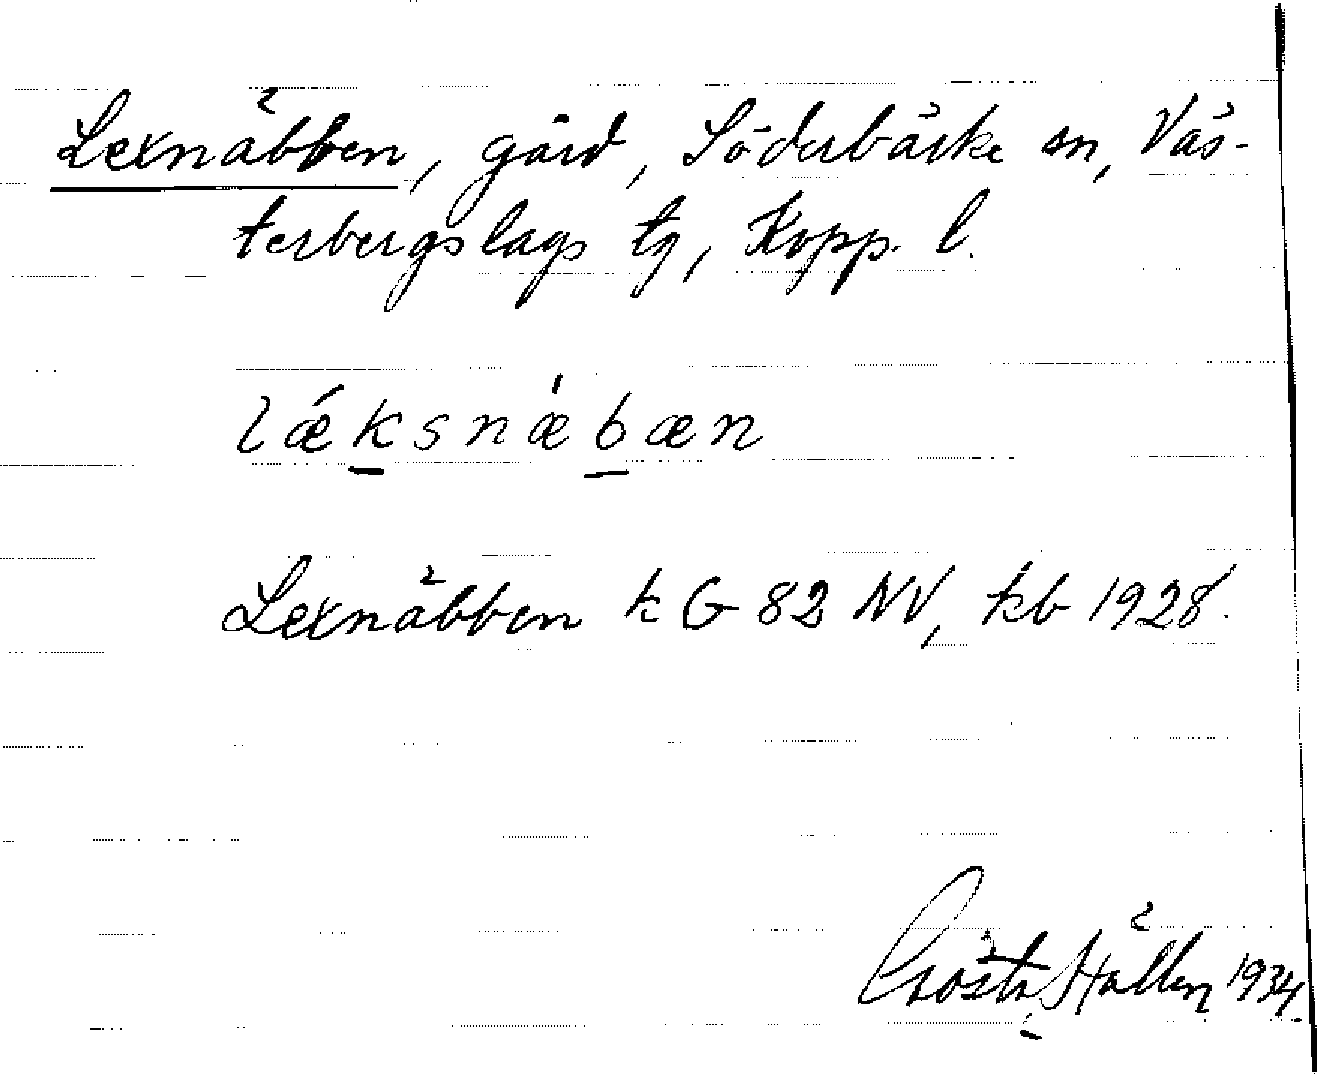 Lexnäbben, gård, Söderbärke sn, Väs-
terbergslags tg, Kopp. l.
lǽksnæ̍bæn
Lexnäbben k G 82 NV, kb 1928.
Gösta Hallen 1934.